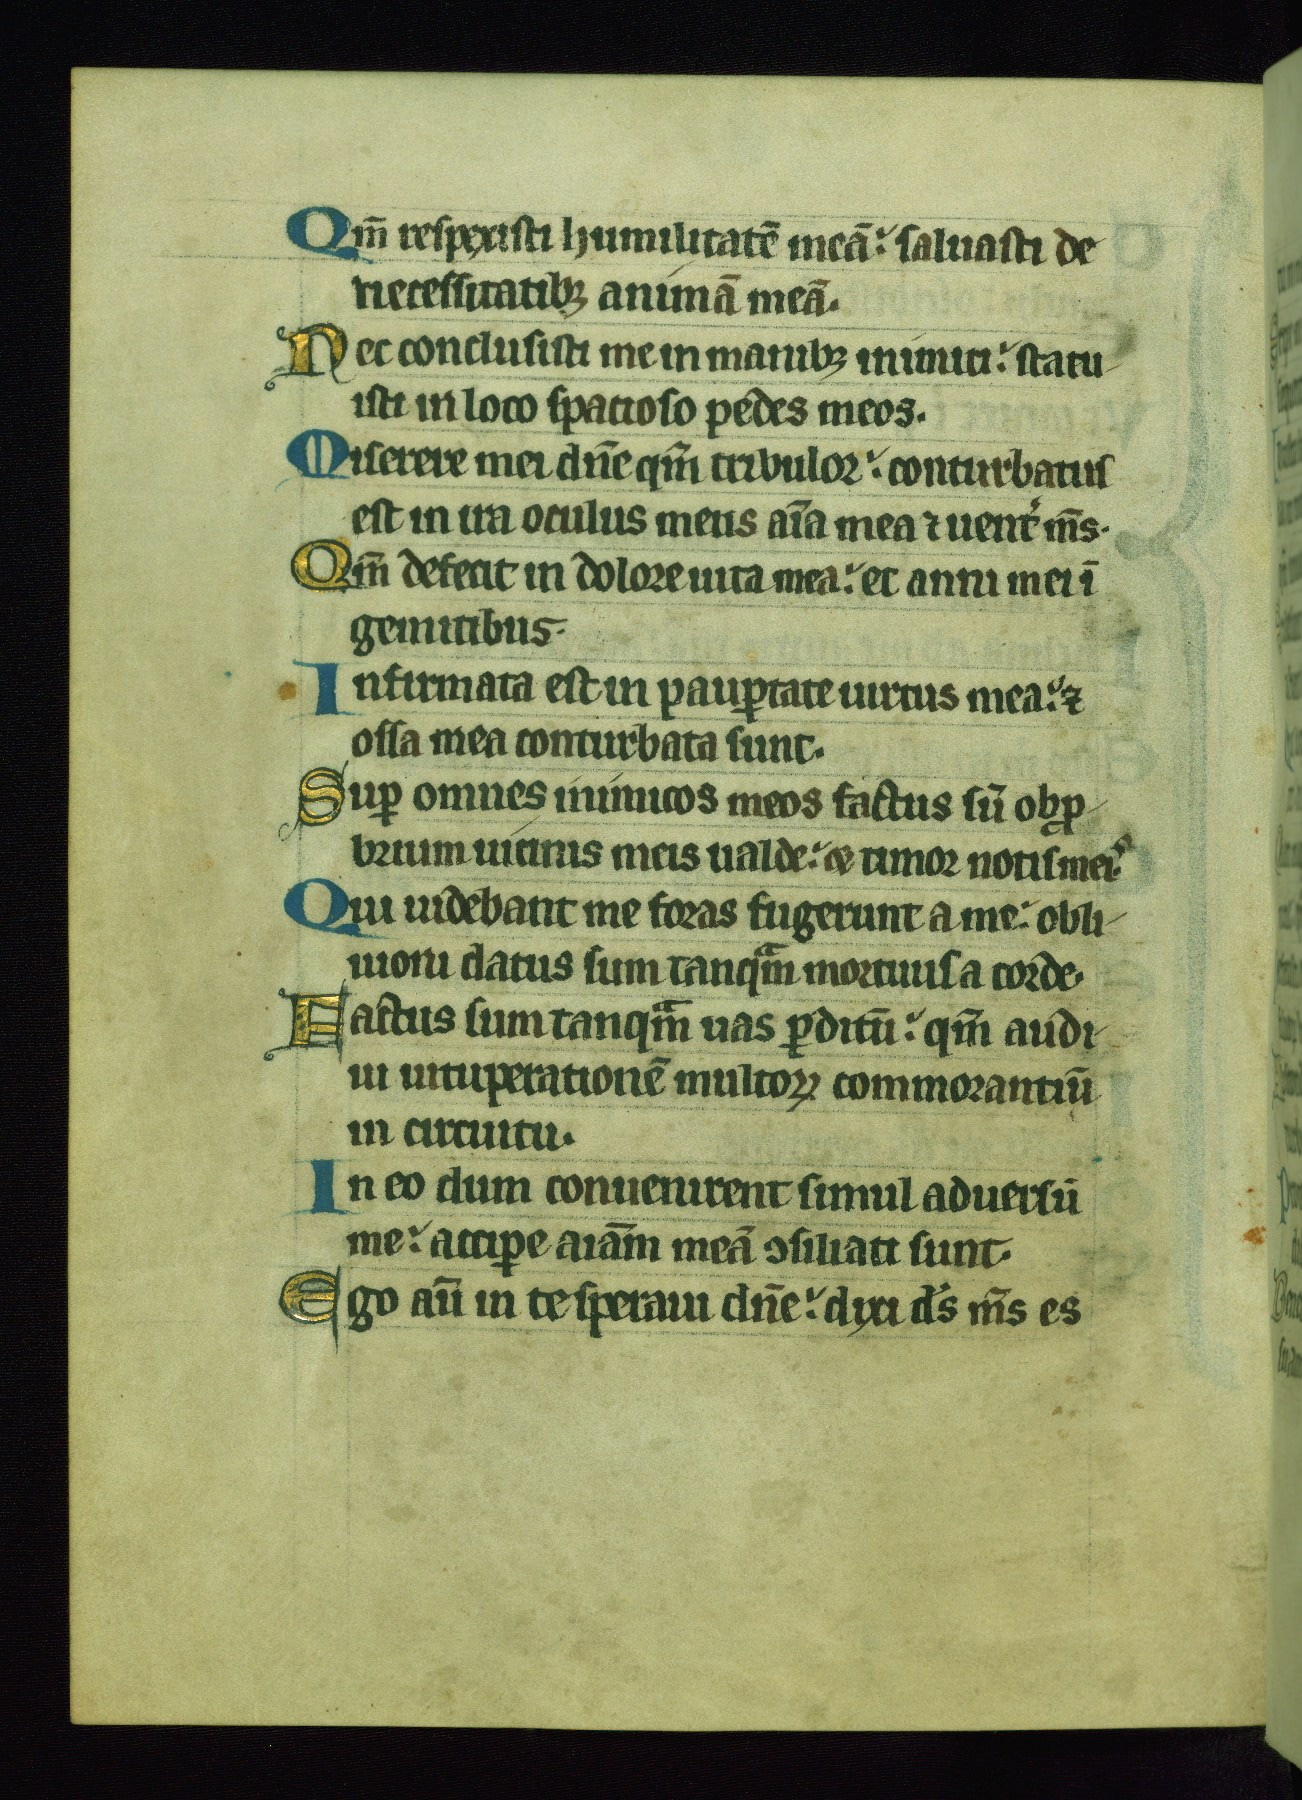 Qm̄ respexisti humilitatē meā: saluasti de
necessitatibꝫ animā meā.
Nec conclusisti me in manibꝫ inimici: statu
isti in loco spatioso pedes meos.
Miserere mei dn̄e qm̄ tribulor: conturbatus
est in ira oculus meus aīa mea ⁊ uent̉ m̄s.
Qm̄ defecit in dolore uita mea: et anni mei ī
gemitibus.
Infirmata est in paup̄tate uirtus mea: ⁊
ossa mea conturbata sunt.
Sup̄ omnes inimicos meos factus sū obꝓ
brium uicinis meis ualde: et timor notis meis
Qui uidebant me foras fugerunt a me: obli
uioni datus sum tanqᵃm mortuus a corde.
Factus sum tanqᵃm uas ꝑditū: qm̄ audi
ui uituperationē multoꝝ commorantiū
in circuitu.
In eo dum conuenirent simul aduersū
me: acciꝑe aiām meā ꝯsiliati sunt.
Ego aū in te speraui dn̄e: dixi d̄s m̄s es